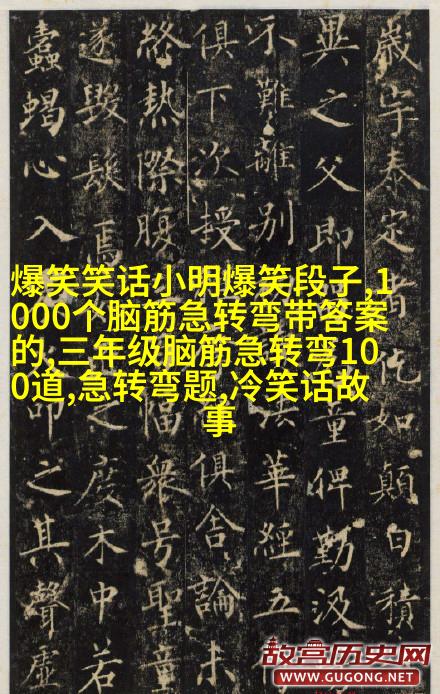 歲宇泰定者如顛白積
異之父即童俾勤汲
不難離別法華經五
俱下次授俱舍論未
終熱際腹幅衆号聖童
遂毀髮焉之度木中若
蠹蝎心入之其聲虛
爆笑笑话小明爆笑段子,1
000个脑筋急转弯带答案
的,三年级脑筋急转弯10
0道,急转弯题,冷笑话故
事
故宫历史网
WWW.GUGONG.NET